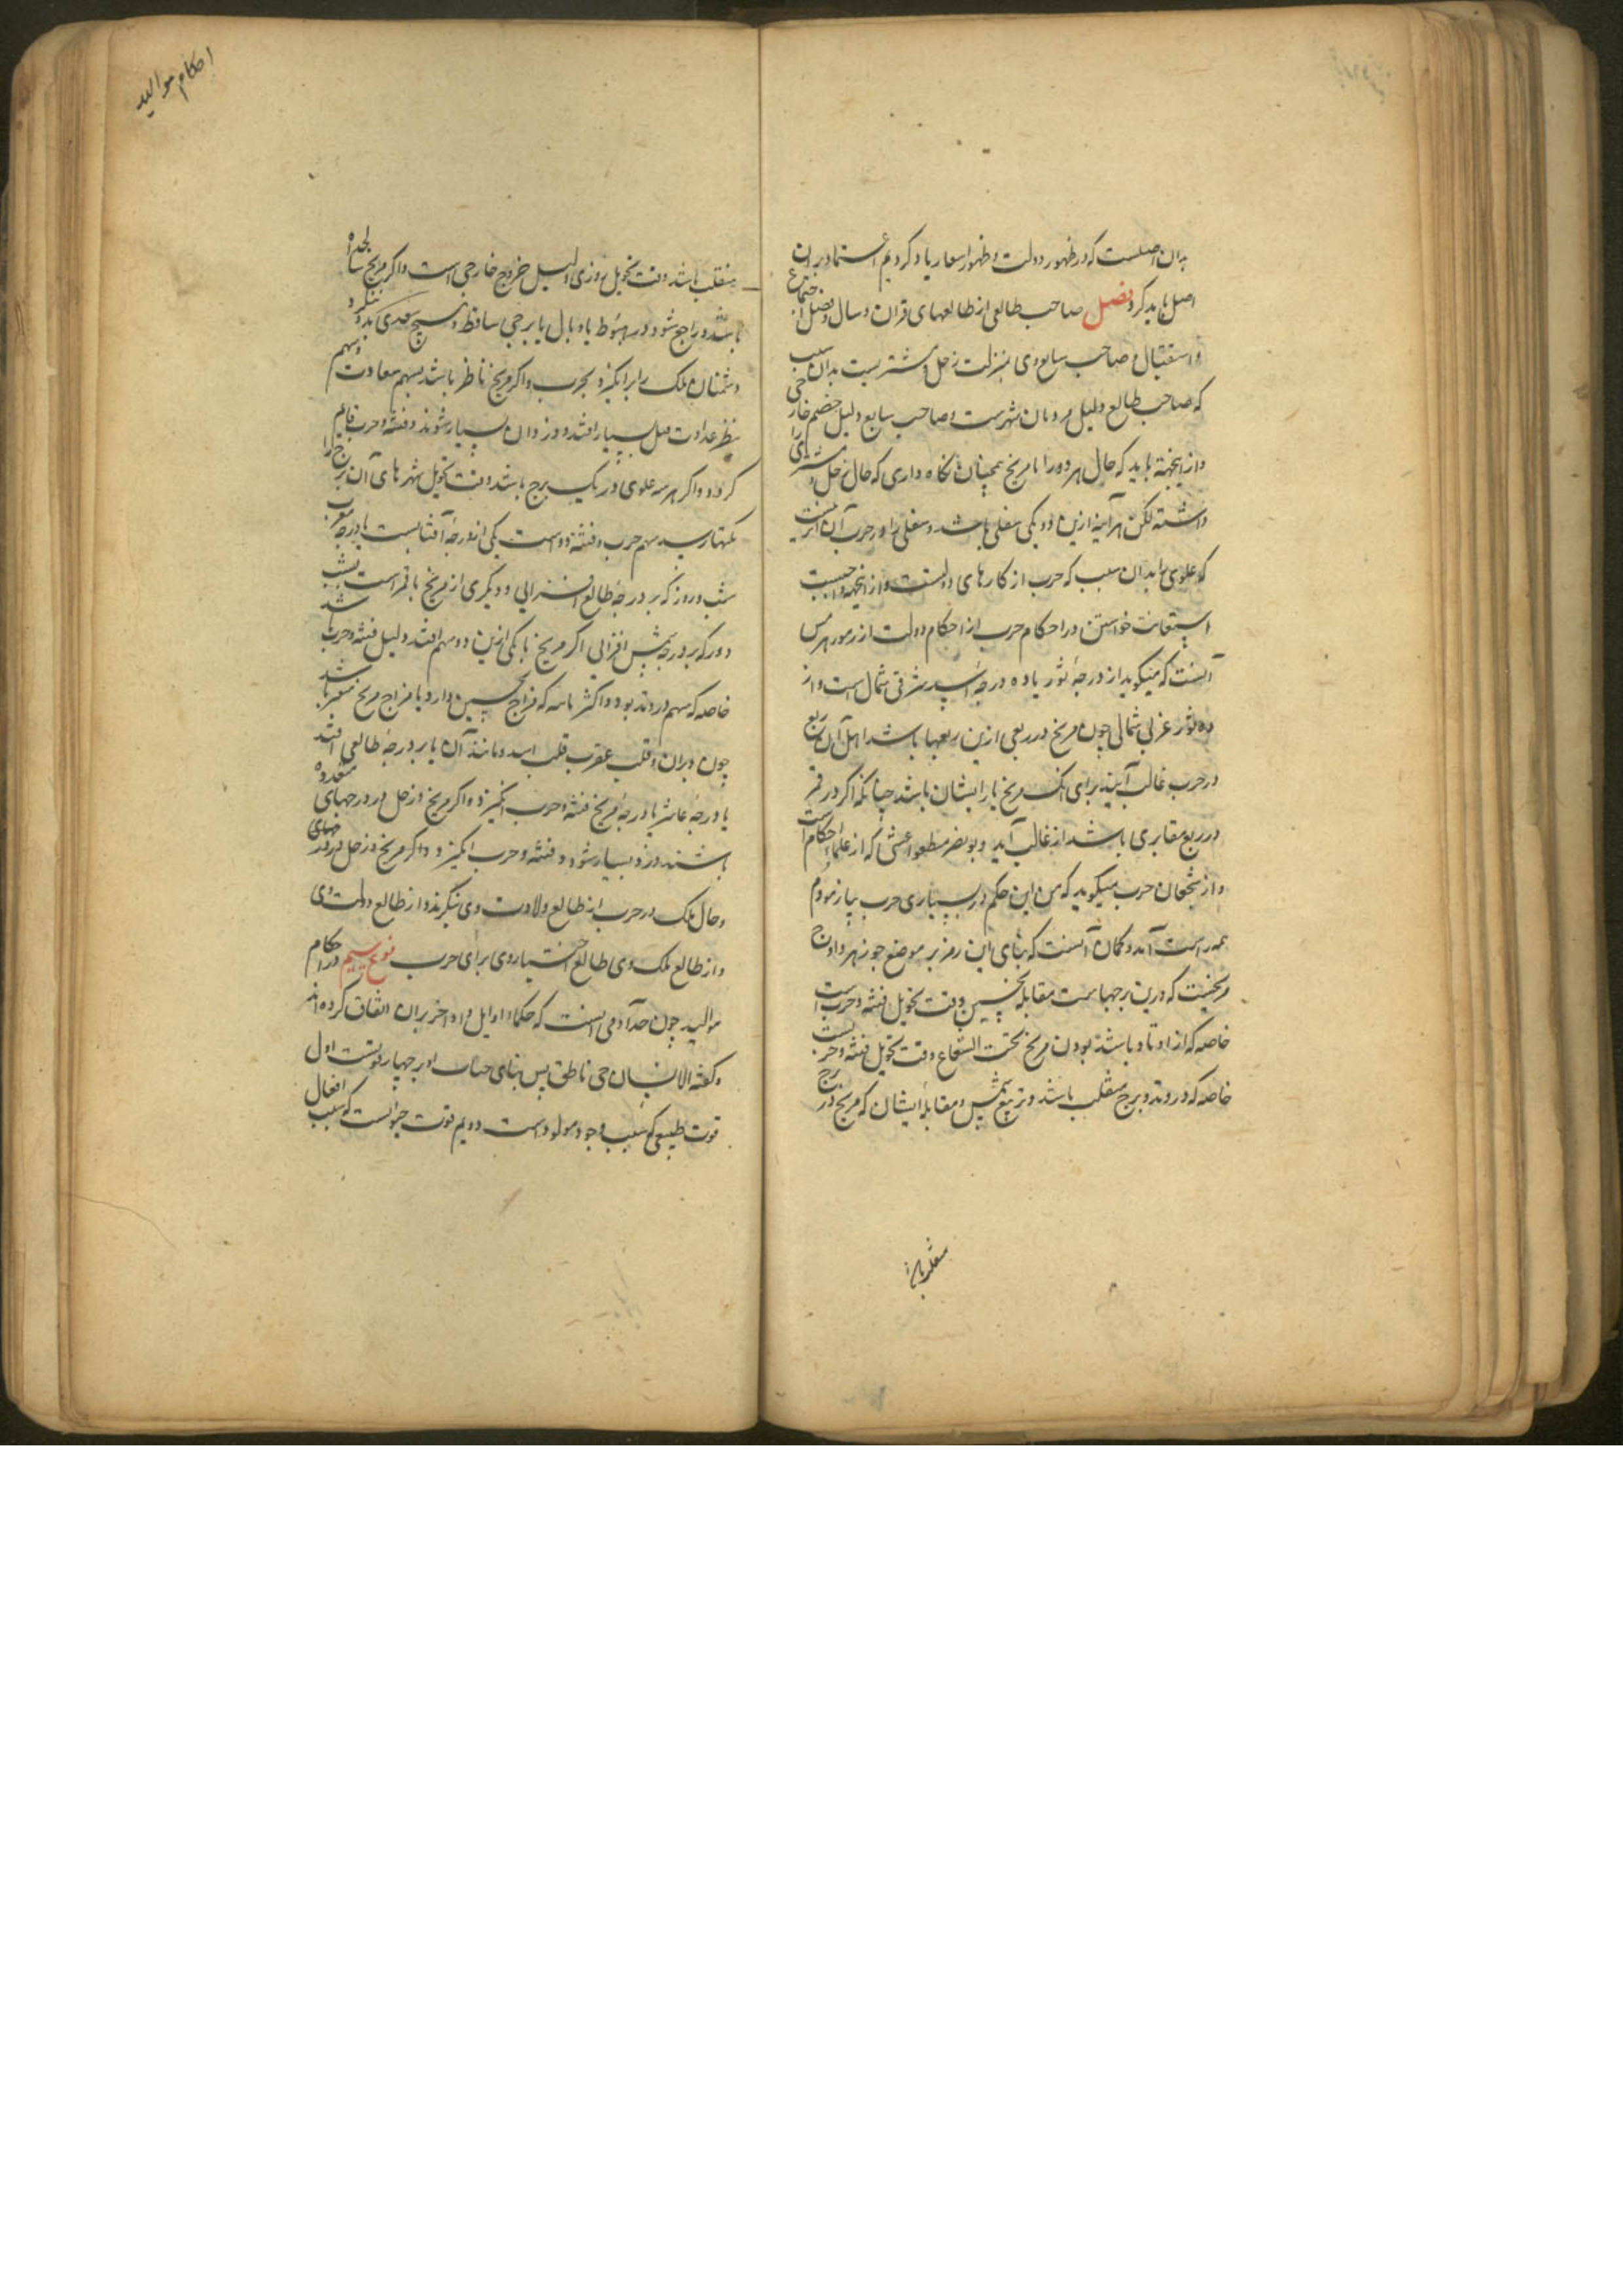 بدان اصلست که در ظهور دولت و ظهور اسعار یاد کردیم اعتماد بران
اصل باید کرد فصل صاحب طالعی از طالعهای قران و سال و فصل و اجتماع
و استقبال و صاحب سابع وی بمنزلت زحل و مشتریست بدان سبب
که صاحب طالع دلیل مردمان شهرست و صاحب سابع دلیل خصم خارجی
و از اینجهة باید که حال هر دو را با مریخ همچنان نگاه داری که حال زحل و مشتری را
داشتهٔ لکن هر آینه ازین دو یکی سفلی باشد و سفلی را در حرب آن اثر نیست
که علوی را بدان سبب که حرب از کارهای دولتست و از اینجهة واجبست
استعانت خواستن در احکام حرب از احکام دولت از رموز هرمس
آنست که میگوید از درجهٔ ثور یا ده درجهٔ اسد شرقی شمال است و از
ده ثور غربی شمالی چون مریخ در ربعی ازین ربعها باشد اهل آن ربع
در حرب غالب آیند برای آنک مریخ یار ایشان باشد چنانکه اگر در قمر
در ربع مقابری باشد از غالب آید و بونصر منطقی که از علماء احکام است
و از شجعان حرب میگوید که من این حکم در بسیاری حرب بیازمودم
همه راست آمد و گمان آنست که بنای این رمز بر موضع جوزهر و اوج
مریخیست که درین برجهاست مقابلهٔ نحسین وقت تحویل فتنه و حرب است
خاصه که از اوتاد باشد بودن مریخ تحت الشعاع وقت تحویل فتنه و حربست
خاصه که در وتد و برج منقلب باشد و تربیع شمس و مقابلهٔ ایشان که مریخ در برج
منقلب باشد
احکام موالید
منقلب باشد وقت تحویل روزی دلیل خروج خارجی است و اگر مریخ
باشد و راجع شود در هبوط یا وبال یا برجی ساقط و هیچ سعدی بدو ننگرد
دشمنان ملک را برانگیزد بحرب و اگر مریخ ناظر باشد بسهم سعادت و سهم
بنظر عداوت قتل بسیار افتد و دزدان بسیار شوند و فتنه و حرب قایم
گردد و اگر هر سه علوی در یک برج باشند وقت تحویل شهرهای آن برج را
نکبتها رسد سهم حرب و فتنه دو است یکی از درجهٔ آفتابست تا درجهٔ
شب و روز که بر درجهٔ طالع افزایی و دیگری از مریخ تا قمر است بشب
و روز که بر درجهٔ شمس افزایی اگر مریخ با یکی ازین دو سهم افتد دلیل فتنه و حرب باشد
خاصه که سهم در وتد بود و اکثر ثابته که مزاج نحسین دارد یا مزاج مریخ مفرد باشد
چون دبران و قلب عقرب و قلب اسد و مانند آن یا بر درجهٔ طالعی افتد
یا درجهٔ عاشر یا درجهٔ مریخ فتنه و حرب انگیزد و اگر مریخ و زحل در درجهای
باشند دزد بسیار شود و فتنه و حرب انگیزد و اگر مریخ و زحل در وتد
و حال ملک در حرب از طالع ولادت وی نگرند و از طالع دولت وی
و از طالع ملک وی طالع اختیار وی برای حرب نوع سیم در احکام
موالید چون حد آدمی آنست که حکماء اوایل و اواخر بران اتفاق کرده اند
و گفته الانسان حی ناطق پس بنای حیات او بر چهار قوتست اول
قوت طبیعی که سبب وجود مولود است دویم قوت حیوانیست که سبب افعال